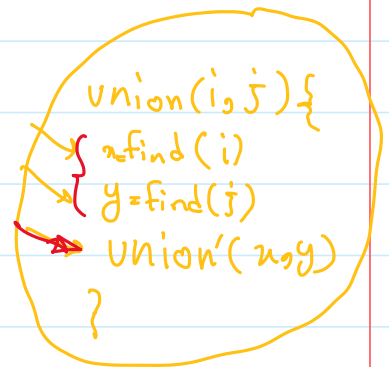 union(i,j){
x=find(i)
y=find(j)
union'(x,y)
}